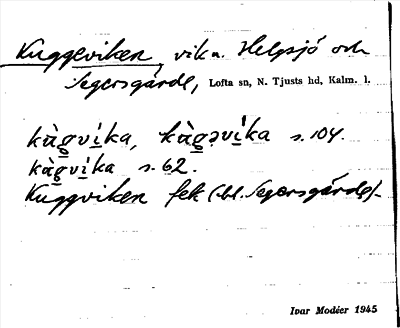 Kuggeviken, vik n. Helgsjö och
Segersgärde, Lofta sn, N. Tjusts hd, Kalm. l.
kàg̲vi̲ka, kàg̲əví̲ka s. 104.
kàg̲ví̲ka s. 62.
Kuggviken fek (bl. Segersgärde).
Ivar Modéer 1945